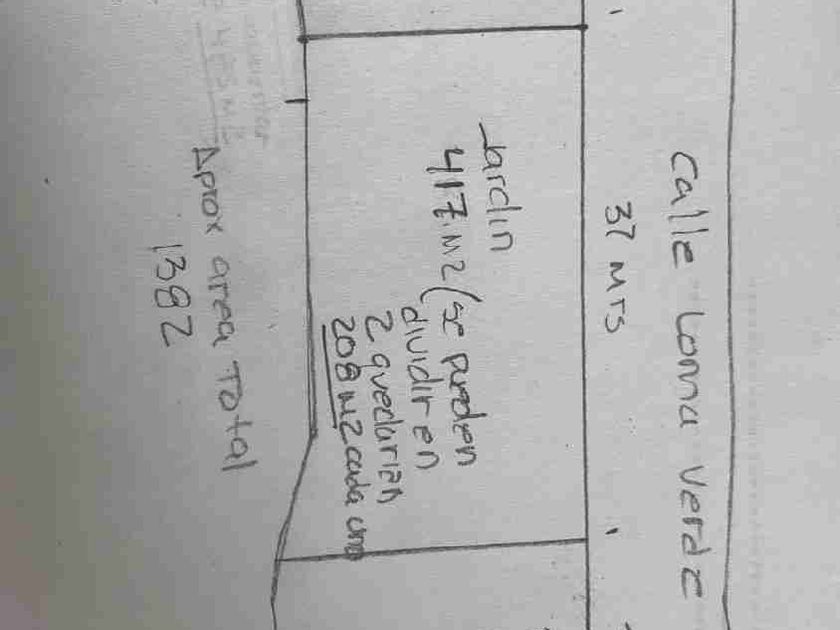 Calle Loma Verde
37 Mrs
Jardin
417 M2 (se pueden
dividir en
2 quedarian
208 M2 cada uno
Aprox area Total
1382